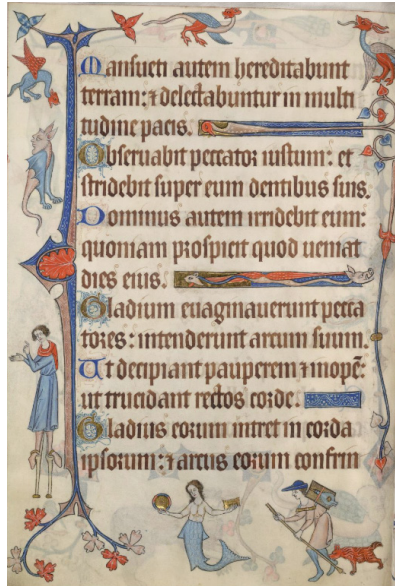 Mansueti autem hereditabunt
terram: ⁊ delectabuntur in multi
tudine pacis.
Obseruabit peccator iustum: et
stridebit super eum dentibus suis.
Dominus autem irridebit eum:
quoniam prospicit quod ueniat
dies eius.
Gladium euaginauerunt pecca
tores: intenderunt arcum suum.
Ut decipiant pauperem ⁊ inopē:
ut trucident rectos corde.
Gladius eorum intret in corda
ipsorum: ⁊ arcus eorum confrin